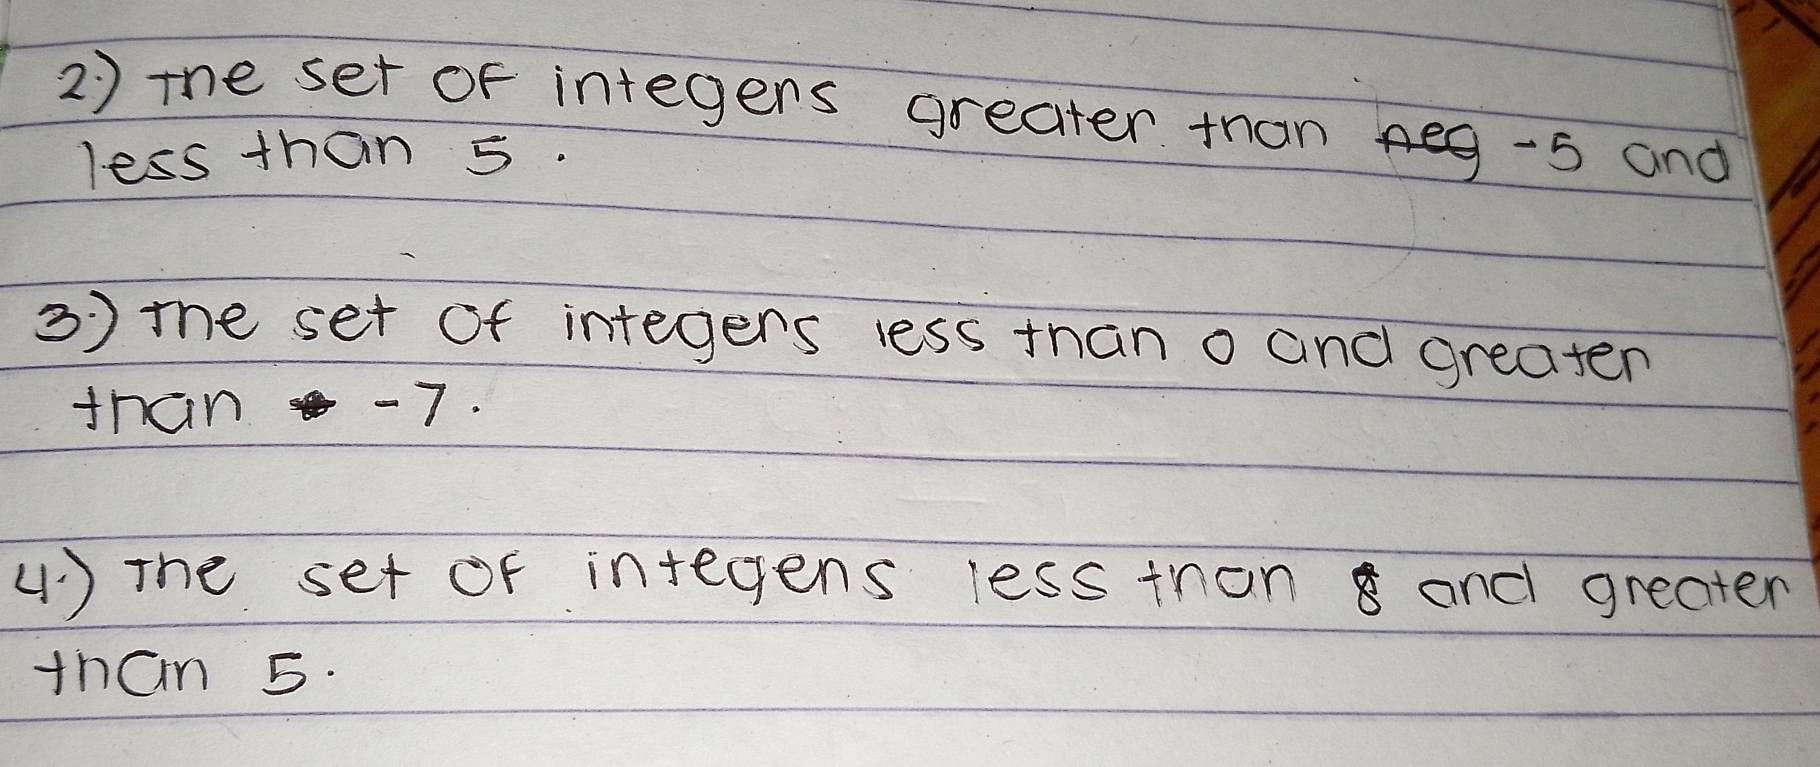 2.) The set of integers greater than neg -5 and
less than 5.
3.) The set of integers less than 0 and greater
than -7.
4.) The set of integers less than 8 and greater
than 5.